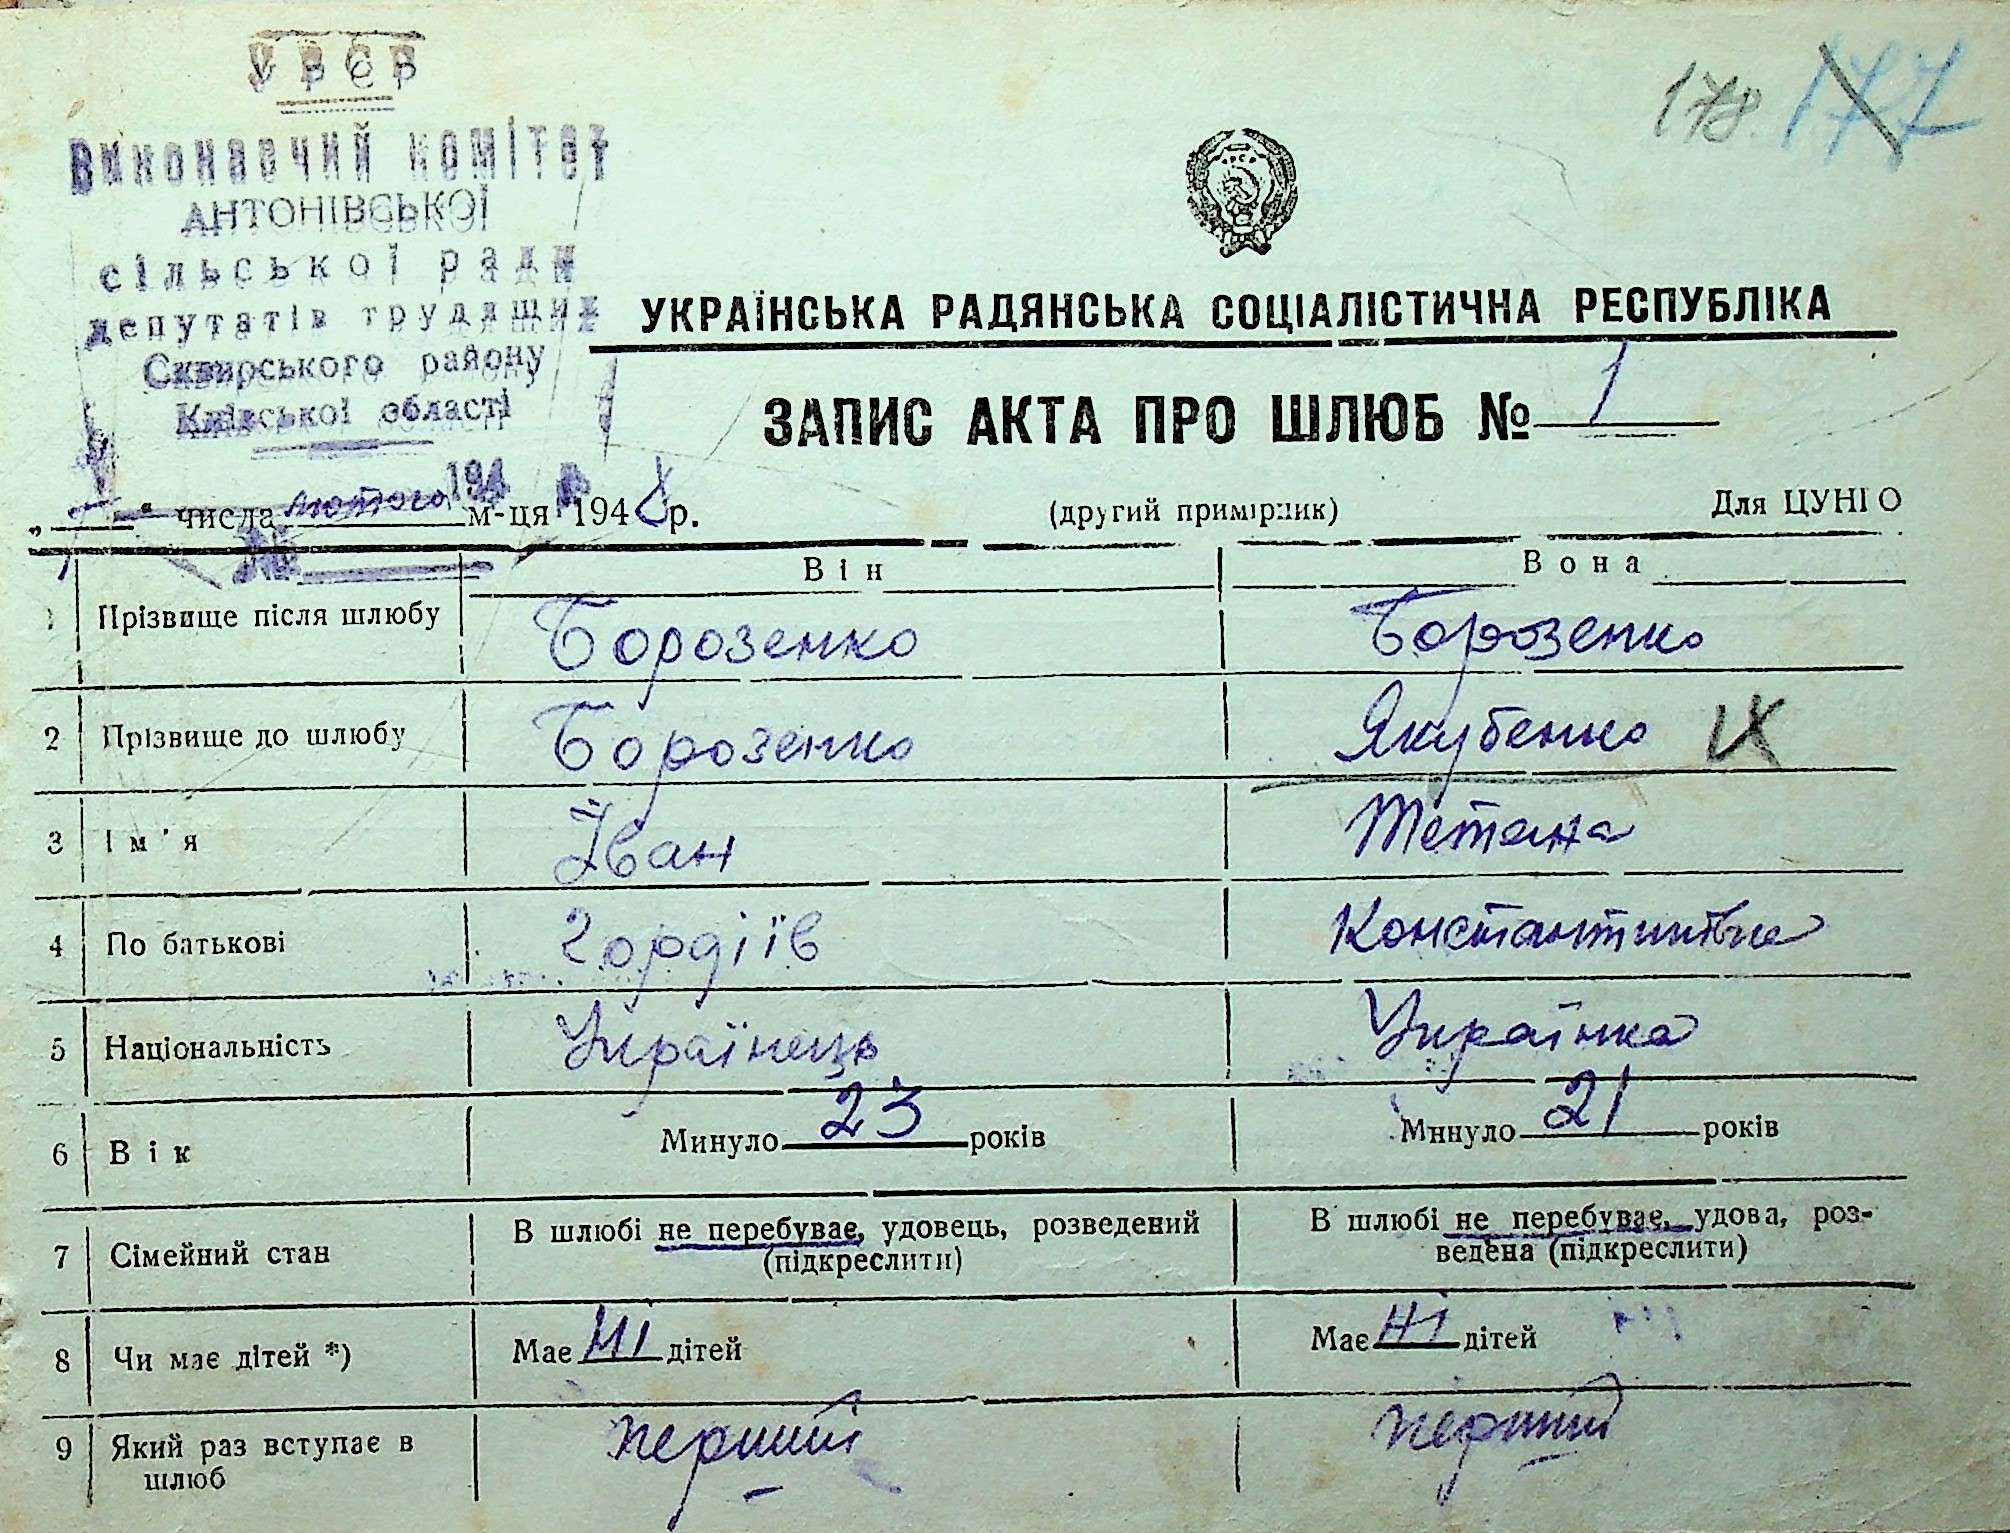 УРСР
Виконавчий комітет
АНТОНІВСЬКОЇ
сільської ради
депутатів трудящих
Сквирського району
Київської області
194
№
178. 177
УКРАЇНСЬКА РАДЯНСЬКА СОЦІАЛІСТИЧНА РЕСПУБЛІКА
ЗАПИС АКТА ПРО ШЛЮБ № 1
„ " числа лютого м-ця 1948 р. (другий примірник) Для ЦУНГО
Він Вона
1 Прізвище після шлюбу Борозенко Борозенко
2 Прізвище до шлюбу Борозенко Якубенко IX
3 Ім'я Іван Тетяна
4 По батькові Гордіїв Константинівна
5 Національність Українець Українка
6 Вік Минуло 23 років Минуло 21 років
7 Сімейний стан В шлюбі не перебуває, удовець, розведений (підкреслити) В шлюбі не перебуває, удова, роз-
ведена (підкреслити)
8 Чи має дітей *) Має ні дітей Має ні дітей
9 Який раз вступає в шлюб перший перший